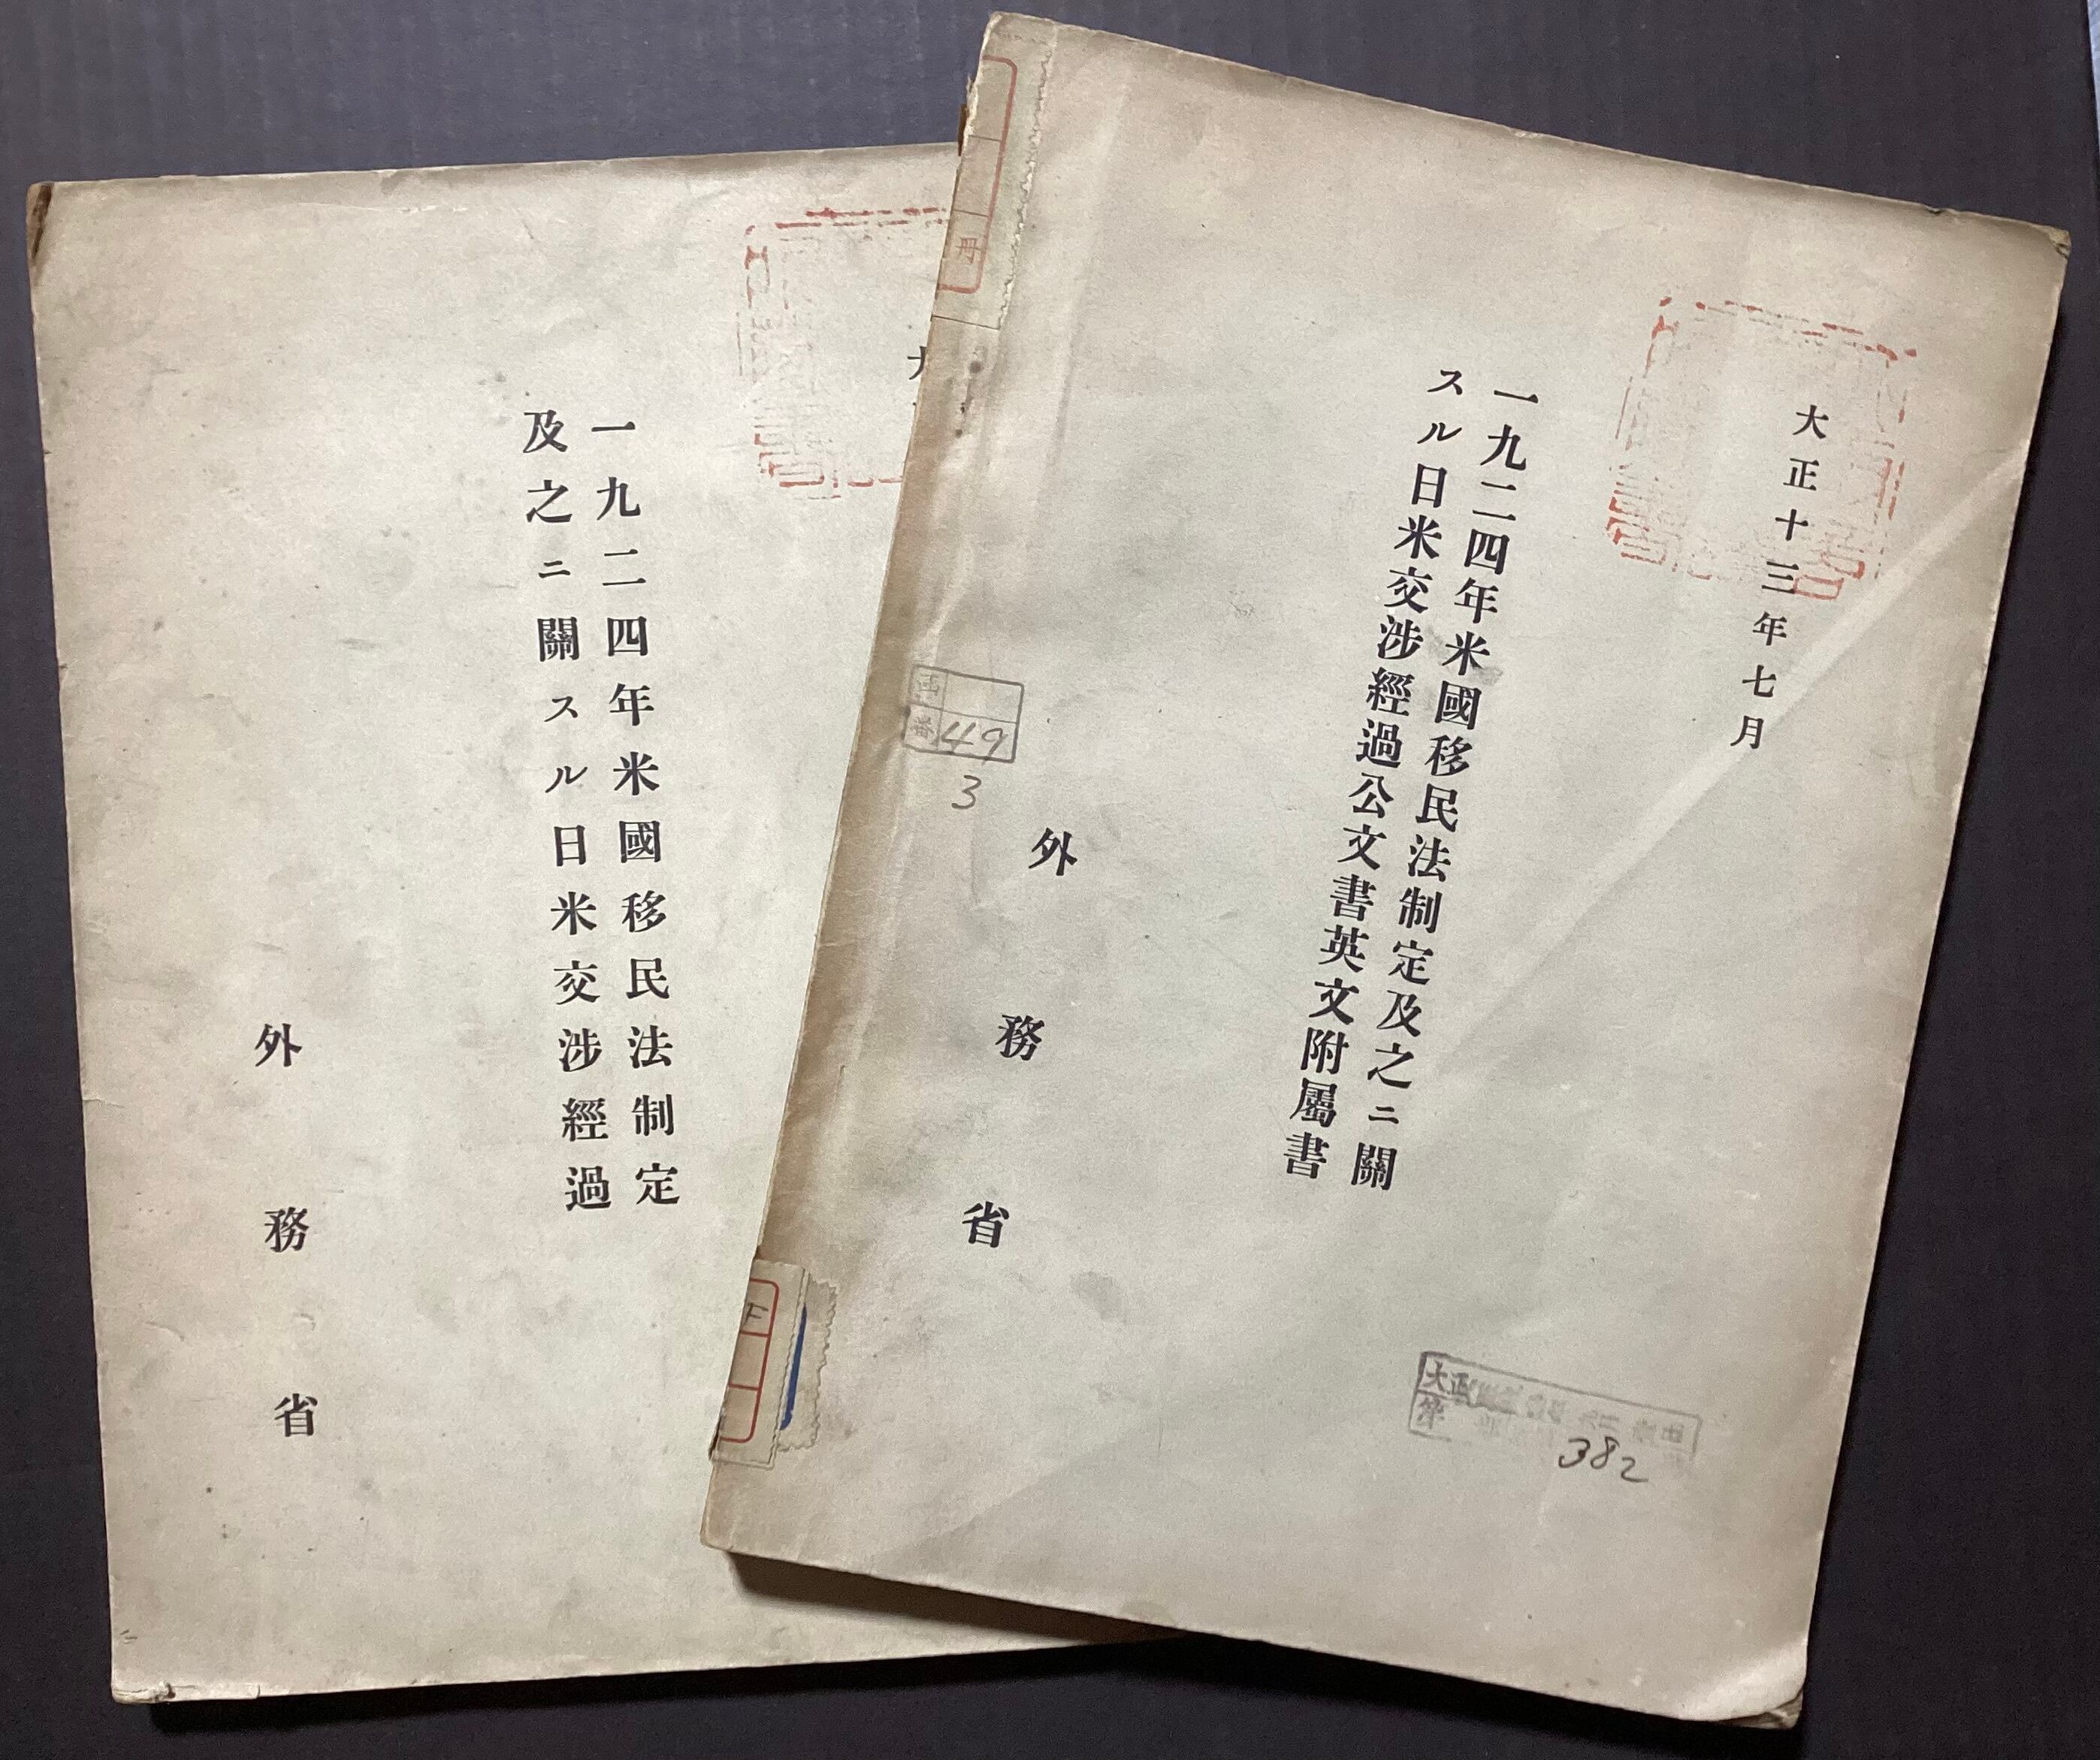 大正十三年七月
一九二四年米國移民法制定及之ニ關
スル日米交涉經過公文書英文附屬書
外務省
冊
番
49
3
F
大正
第
382
大
一九二四年米國移民法制定
及之ニ關スル日米交涉經過
外務省